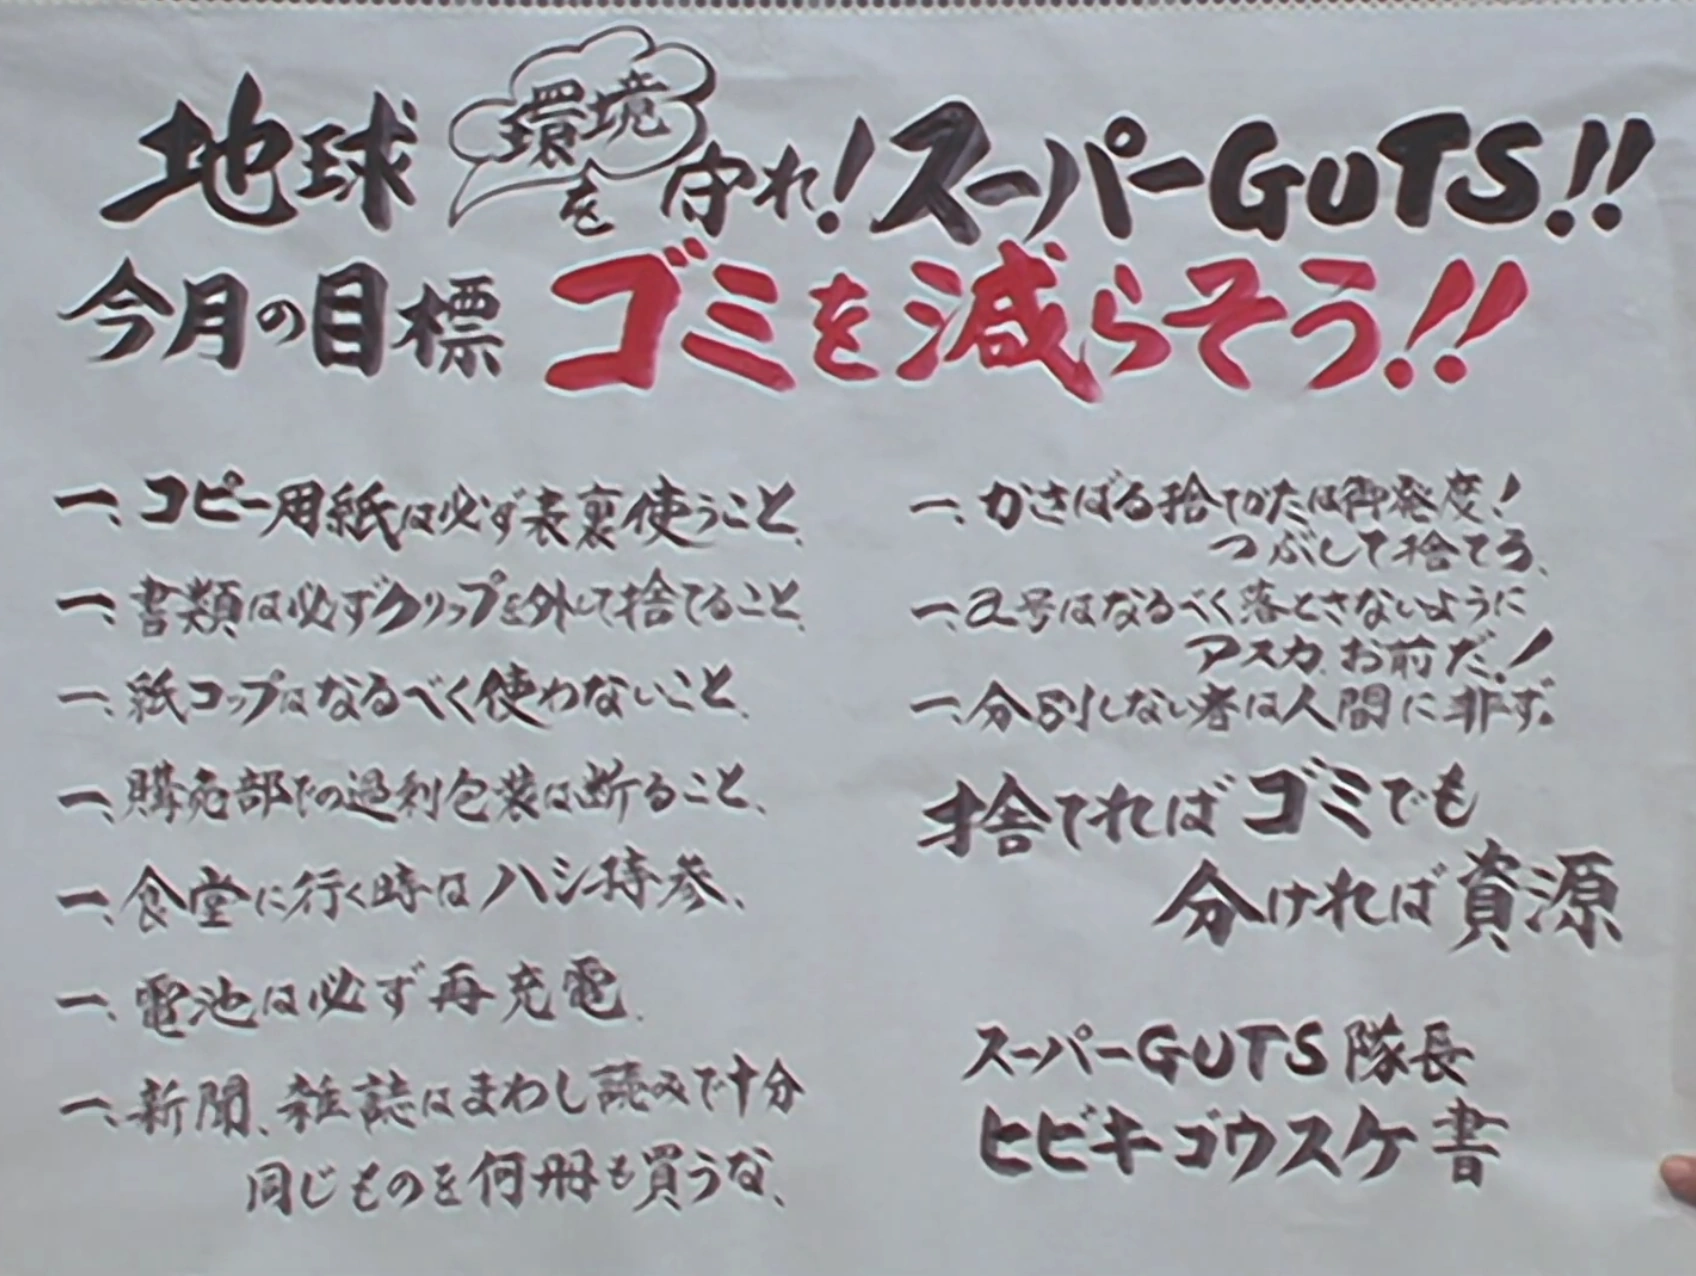 地球環境を守れ!スーパーGUTS!!
今月の目標 ゴミを減らそう!!
一、コピー用紙は必ず表裏使うこと、
一、書類は必ずクリップを外して捨てること、
一、紙コップはなるべく使わないこと、
一、購売部での過剰包装は断ること、
一、食堂に行く時はハシ持参、
一、電池は必ず再充電、
一、新聞、雑誌はまわし読みで十分
同じものを何冊も買うな、
一、かさばる捨てかたは御発度!
つぶして捨てろ、
一、2号はなるべく落とさないように
アスカ、お前だ!
一、分別しない者は人間に非ず。
捨てればゴミでも
分ければ資源
スーパーGUTS隊長
ヒビキゴウスケ書